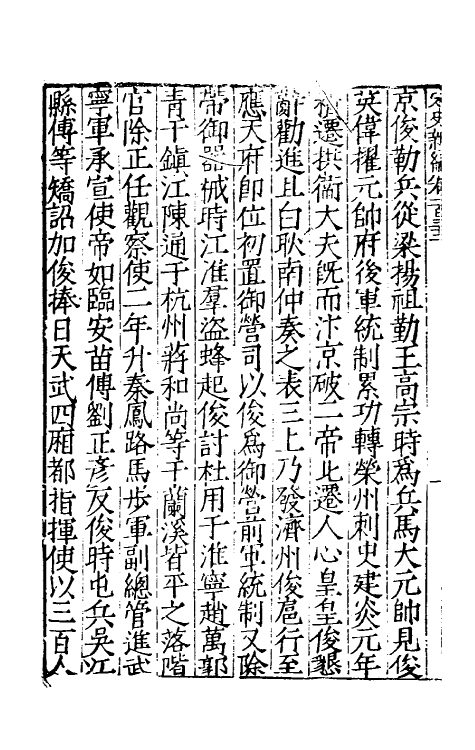 宋史新編卷一百三十三
京俊勒兵從梁楊祖勤王高宗時為兵馬大元帥見俊
英偉擢元帥府後軍統制累功轉榮州刺史建炎元年
遷拱衛大夫既而汴京破二帝北遷人心皇皇俊懇
辭勸進且白耿南仲奏之表三上乃發濟州俊扈行至
應天府即位初置御營司以俊為御營前軍統制又除
帶御器械時江淮羣盜蜂起俊討杜用于淮寧趙萬郭
青于鎮江陳通于杭州蔣和尚等于蘭溪皆平之落階
官除正任觀察使二年升秦鳳路馬步軍副總管進武
寧軍承宣使帝如臨安苗傅劉正彥反俊時屯兵吳江
縣傅等矯詔加俊捧日天武四廂都指揮使以三百人